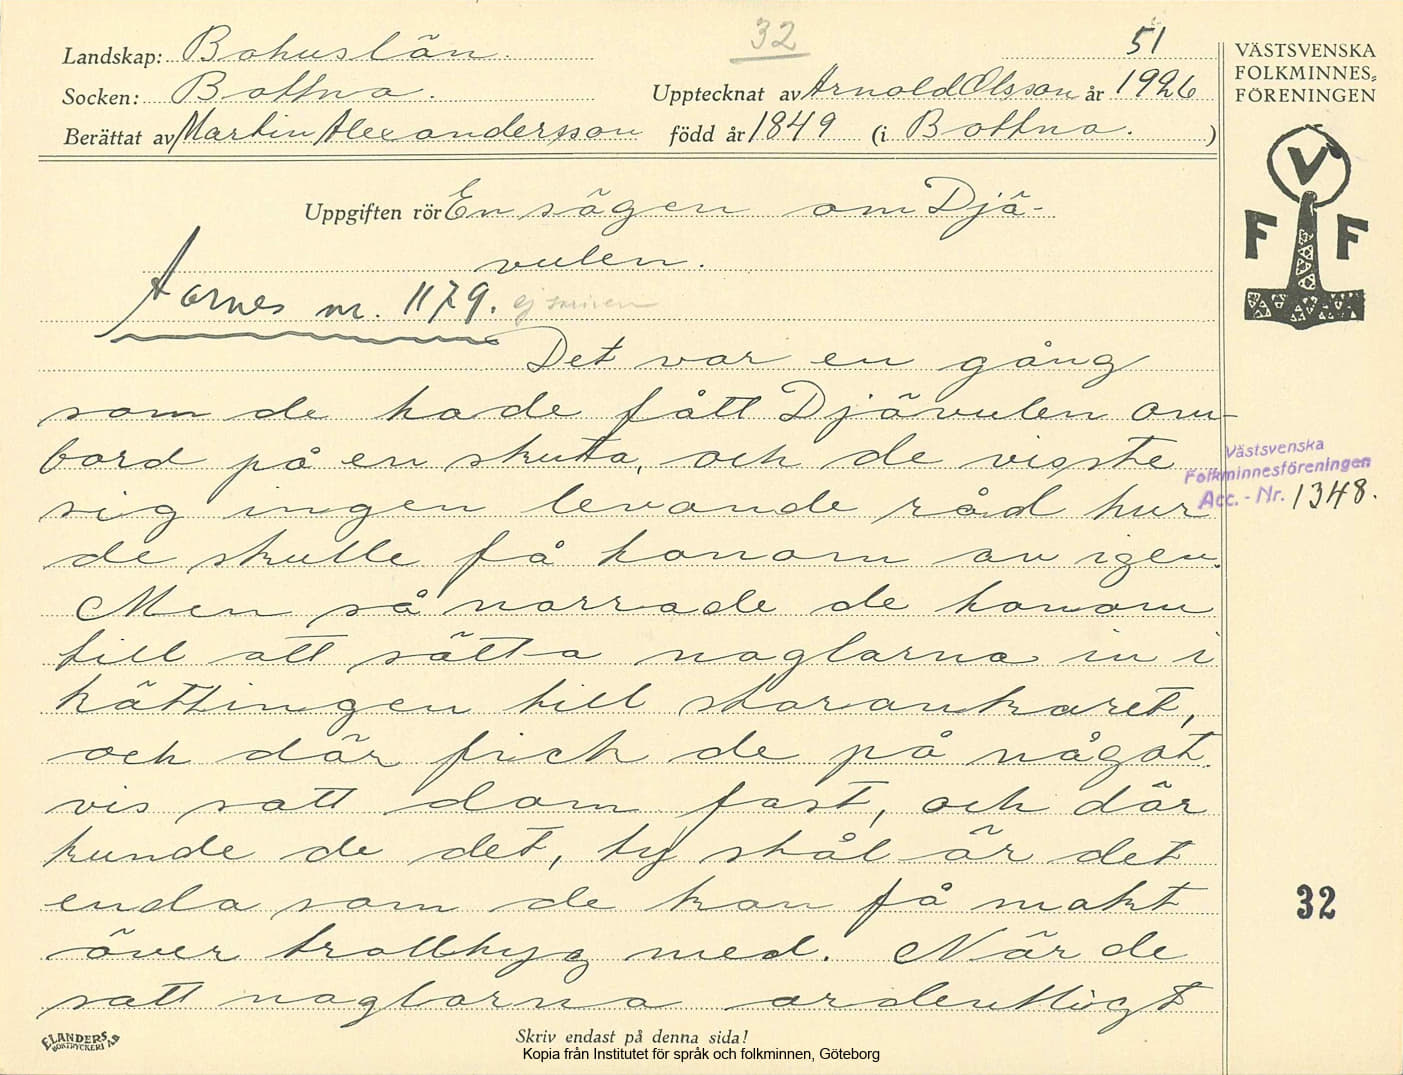 32
51
Landskap: Bohuslän.
Socken: Bottna.
Upptecknat av Arnold Olsson år 1926
Berättat av Martin Alexandersson född år 1849 (i Bottna. )
VÄSTSVENSKA
FOLKMINNES=
FÖRENINGEN
V
F F
Uppgiften rör En sägen om Djä-
vulen.
Aarnes nr. 1179. ej
Det var en gång
som de hade fått Djävulen om-
bord på en skuta, och de visste
sig ingen levande råd hur
de skulle få honom av igen.
Men så narrade de honom
till att sätta naglarna in i
kättingen till storankaret,
och där fick de på något
vis satt dom fast, och där
kunde de det, ty stål är det
enda som de kan få makt
över trolltyg med. När de
satt naglarna ordentligt
Västsvenska
Folkminnesföreningen
Acc.-Nr. 1348.
32
ELANDERS
BOKTRYCKERI AB
Skriv endast på denna sida!
Kopia från Institutet för språk och folkminnen, Göteborg